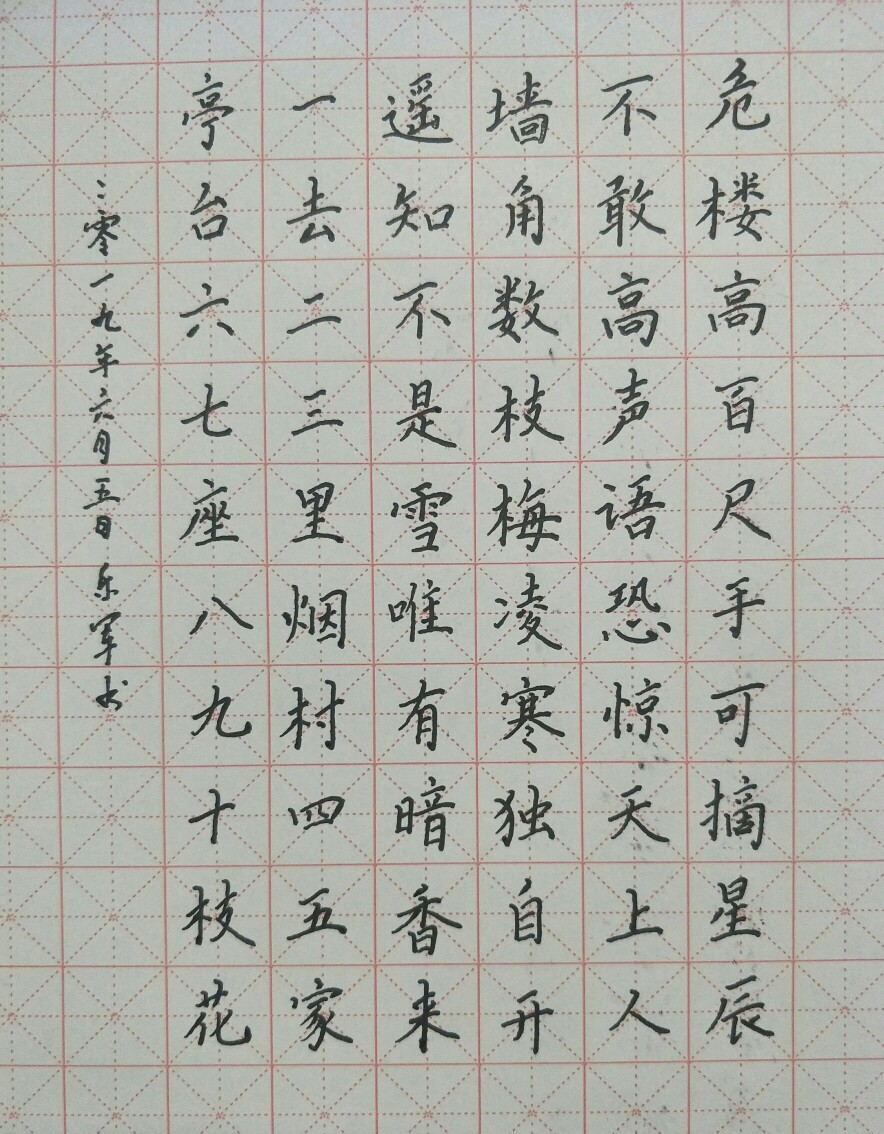 危楼高百尺手可摘星辰
不敢高声语恐惊天上人
墙角数枝梅凌寒独自开
遥知不是雪唯有暗香来
一去二三里烟村四五家
亭台六七座八九十枝花
二零一九年六月五日乐军书